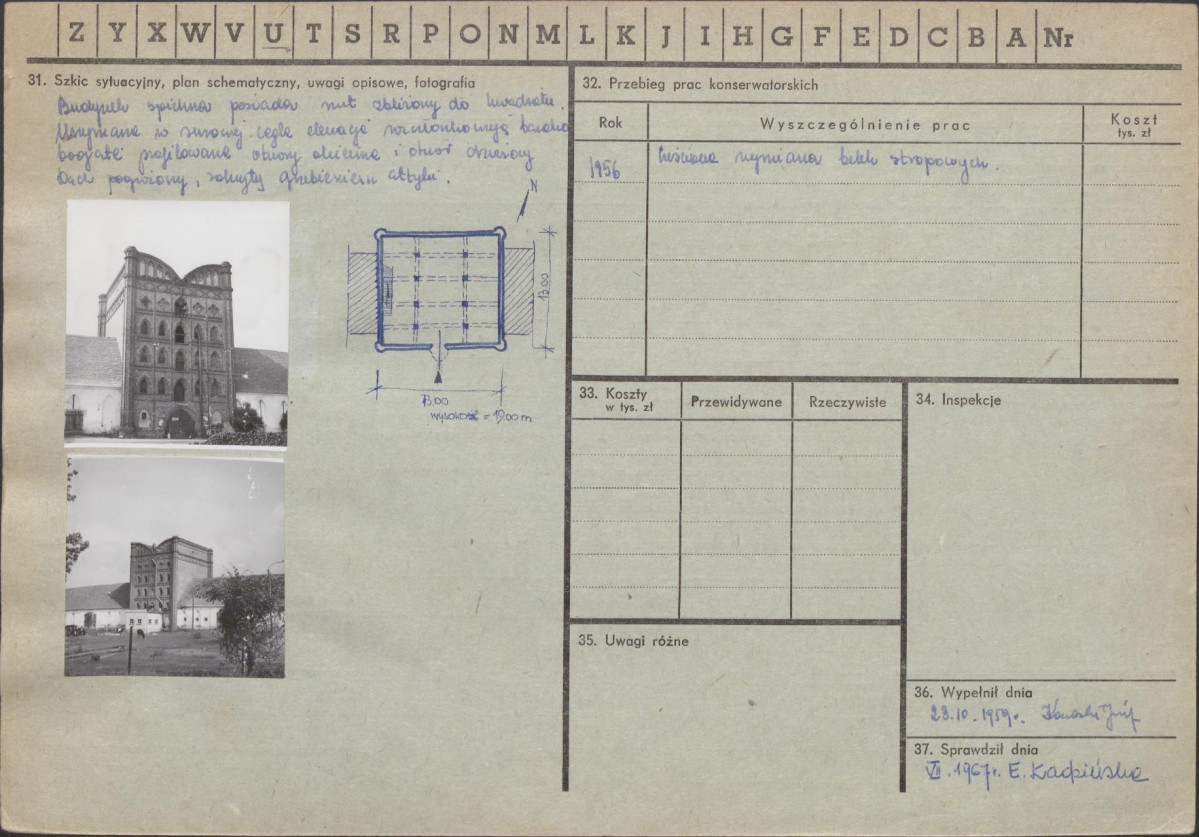 Z Y X W V U T S R P O N M L K J I H G F E D C B A Nr
31. Szkic sytuacyjny, plan schematyczny, uwagi opisowe, fotografia
Budynek spichrza posiada rzut zbliżony do kwadratu.
Utrzymane w surowej cegle elewacje rozczłonkowują bardzo
bogate profilowane otwory okienne i otwór drzwiowy
Dach pogrążony, zakryty grzebieniem attyki.
N
13.00
13.00
wysokość = 19,00 m
32. Przebieg prac konserwatorskich
Rok
Wyszczególnienie prac
Koszt
tys. zł
1956
Częściowa wymiana belek stropowych.
33. Koszty
w tys. zł
Przewidywane
Rzeczywiste
34. Inspekcje
35. Uwagi różne
36. Wypełnił dnia
23.10.1959r.
37. Sprawdził dnia
VII.1967r. E. Kacpińska